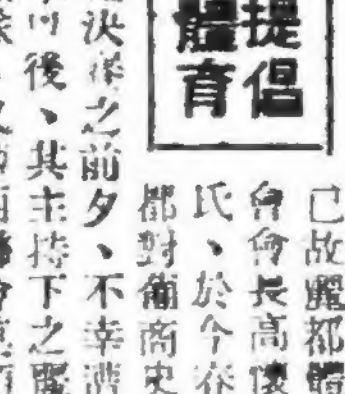 提倡
體育
已故麗都體
會會長高懷
氏、於今春
都對葡商史
決賽之前夕、不幸
後、其主持下之麗